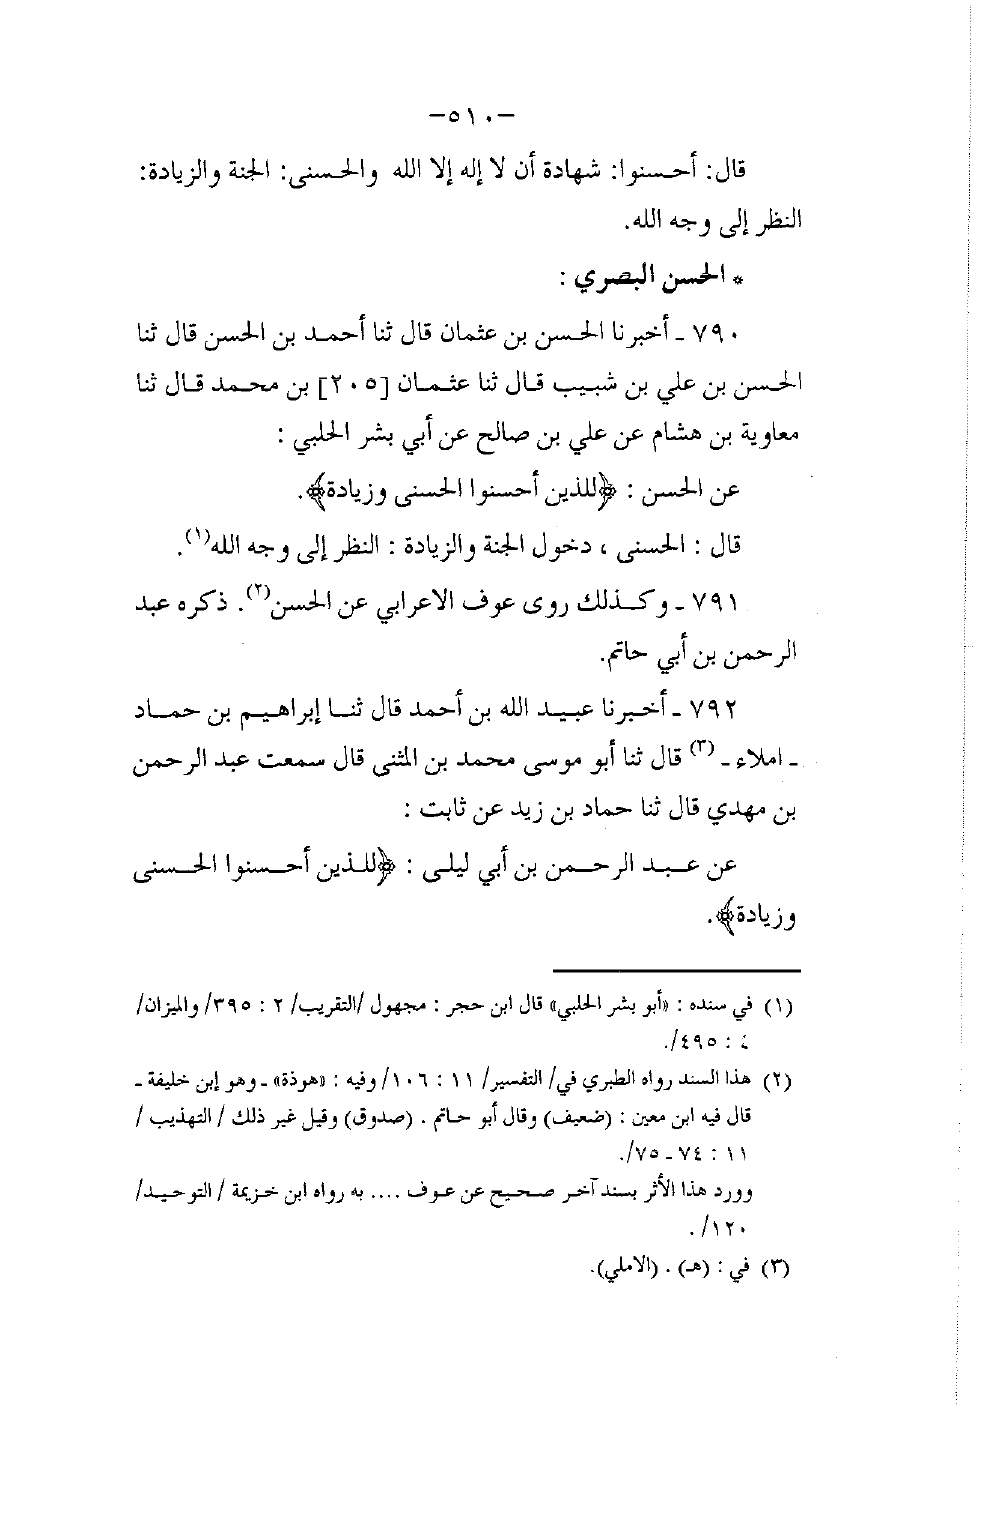 –٥١٠–
قال: أحسنوا: شهادة أن لا إله إلا الله والحسنى: الجنة والزيادة:
النظر إلى وجه الله.
* الحسن البصري :
٧٩٠ ـ أخبرنا الحسن بن عثمان قال ثنا أحمد بن الحسن قال ثنا
الحسن بن علي بن شبيب قال ثنا عثمان [٢٠٥] بن محمد قال ثنا
معاوية بن هشام عن علي بن صالح عن أبي بشر الحلبي :
عن الحسن : ﴿للذين أحسنوا الحسنى وزيادة﴾.
قال : الحسنى ، دخول الجنة والزيادة : النظر إلى وجه الله(١).
٧٩١ ـ وكذلك روى عوف الاعرابي عن الحسن(٢). ذكره عبد
الرحمن بن أبي حاتم.
٧٩٢ ـ أخبرنا عبيد الله بن أحمد قال ثنا إبراهيم بن حماد
ـ املاء ـ(٣) قال ثنا أبو موسى محمد بن المثنى قال سمعت عبد الرحمن
بن مهدي قال ثنا حماد بن زيد عن ثابت :
عن عبد الرحمن بن أبي ليلى : ﴿للذين أحسنوا الحسنى
وزيادة﴾.
(١) في سنده : «أبو بشر الحلبي» قال ابن حجر : مجهول /التقريب/ ٢ : ٣٩٥/ والميزان/
٤ : ٤٩٥/.
(٢) هذا السند رواه الطبري في/ التفسير/ ١١ : ١٠٦/ وفيه : «هوذة» ـ وهو إبن خليفة ـ
قال فيه ابن معين : (ضعيف) وقال أبو حاتم . (صدوق) وقيل غير ذلك / التهذيب /
١١ : ٧٤ ـ ٧٥/.
وورد هذا الأثر بسند آخر صحيح عن عوف .... به رواه ابن خزيمة / التوحيد/
١٢٠/ .
(٣) في : (هـ) . (الاملي).